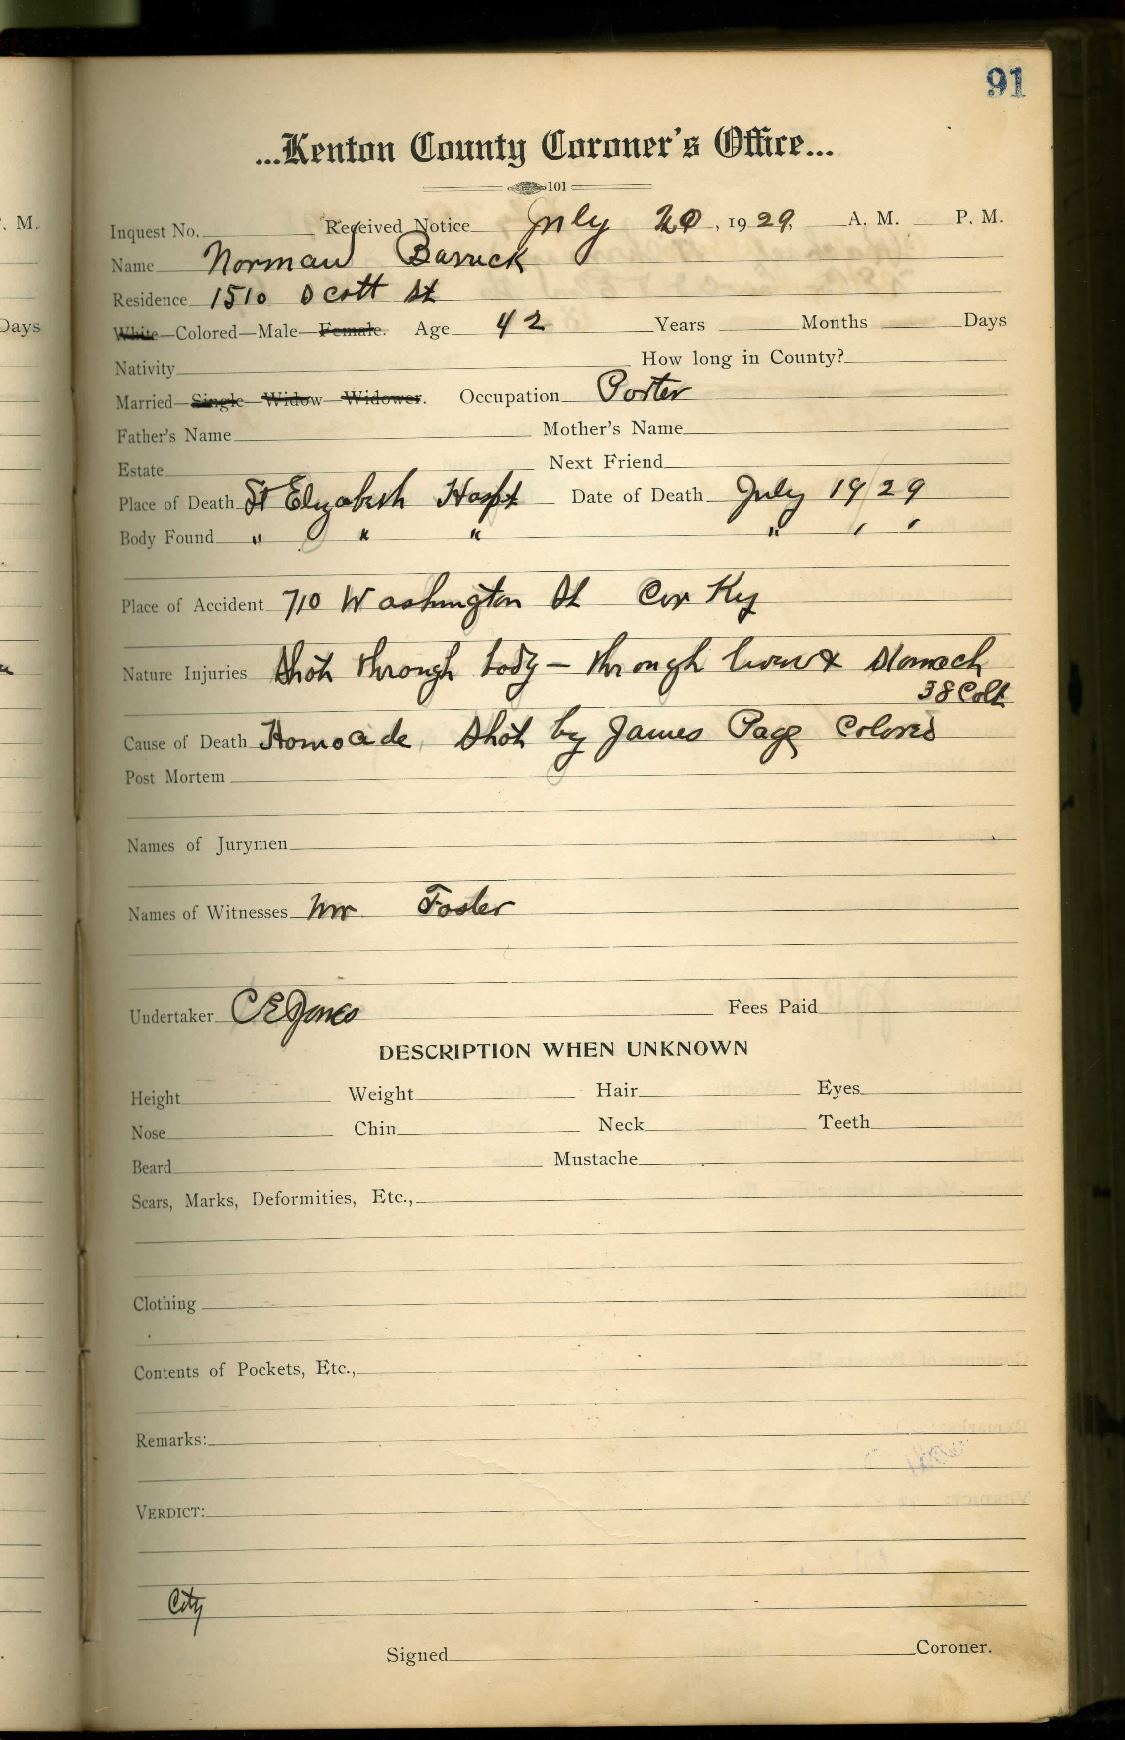 91
...Kenton County Coroner's Office...
101
Inquest No. Received Notice July 20, 1929, A. M. P. M.
Name Norman Barruck
Residence 1510 Scott St
White—Colored—Male—Female. Age 42 Years Months Days
Nativity How long in County?
Married—Single—Widow—Widower. Occupation Porter
Father's Name Mother's Name
Estate Next Friend
Place of Death St Elizabeth Hospt Date of Death July 19/29
Body Found " " " " ' '
Place of Accident 710 Washington St Cov Ky
Nature Injuries Shot through body — through liver & stomach
38 Colt
Cause of Death Homocide Shot by James Page Colored
Post Mortem
Names of Jurymen
Names of Witnesses Mr Foster
Undertaker C E Jones Fees Paid
DESCRIPTION WHEN UNKNOWN
Height Weight Hair Eyes
Nose Chin Neck Teeth
Beard Mustache
Scars, Marks, Deformities, Etc.,
Clothing
Contents of Pockets, Etc.,
Remarks:
VERDICT:
City
Signed Coroner.
. M.
Days